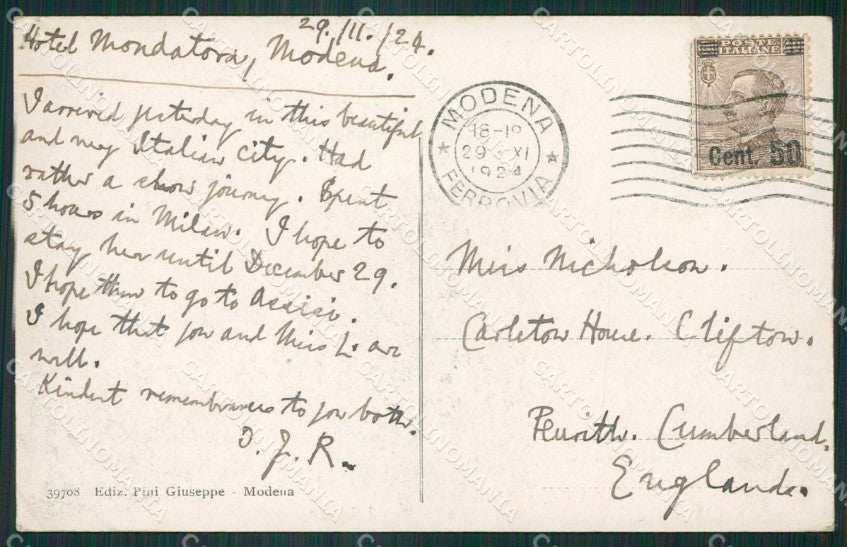 29./11./24.
Hotel Mondatora, Modena.
I arrived yesterday in this beautiful
and very Italian city. Had
rather a slow journey. Spent
5 hours in Milan. I hope to
stay here until December 29.
I hope then to go to Assisi.
I hope that you and Miss L. are
well.
Kindest remembrances to you both.
J. R.
39708 Ediz. Pini Giuseppe - Modena
MODENA
18-19
29 XI
1924
FERROVIA
POSTE
ITALIANE
Cent. 50
Miss Nicholson.
Carleton House. Clifton.
Penrith. Cumberland.
England.
CARTOLINOMANIA